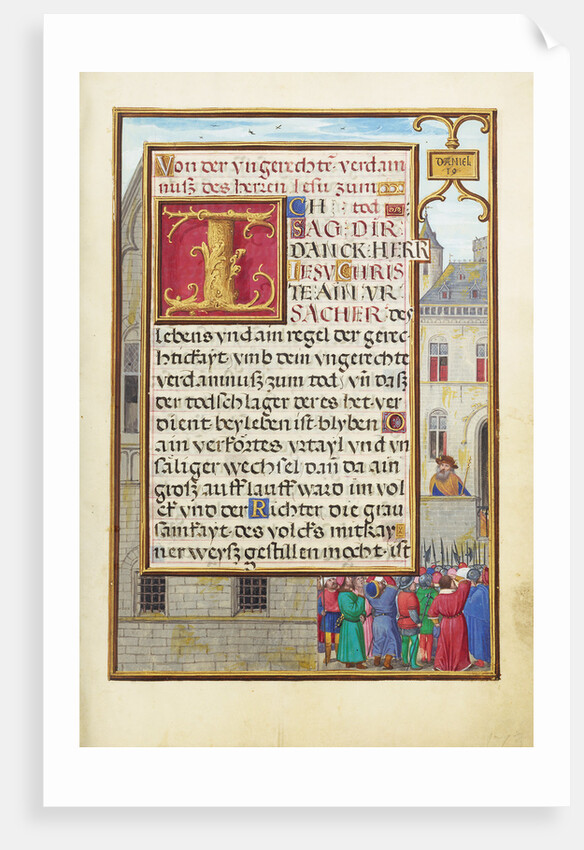 DANIEL
19
Von der vngerechtē verdam
nusz des herren Iesu zum
ICH : tod
SAG DIR
DANCK HERR
IESV CHRIS
TE AIN VR
SACHER des
lebens vnd ain regel der gerec-
htickayt · vmb dein vngerechte
verdamnusz zum tod / vn̄ dasz
der todschlager der es het ver
dient bey leben ist blyben O
ain verkörtes vrtayl vnd vn
säliger wechsel dan̄ da ain
grosz aufflauff ward im vol
ck vnd der Richter die grau
samkayt des volcks mit kay
ner weysz gestillen mocht · ist